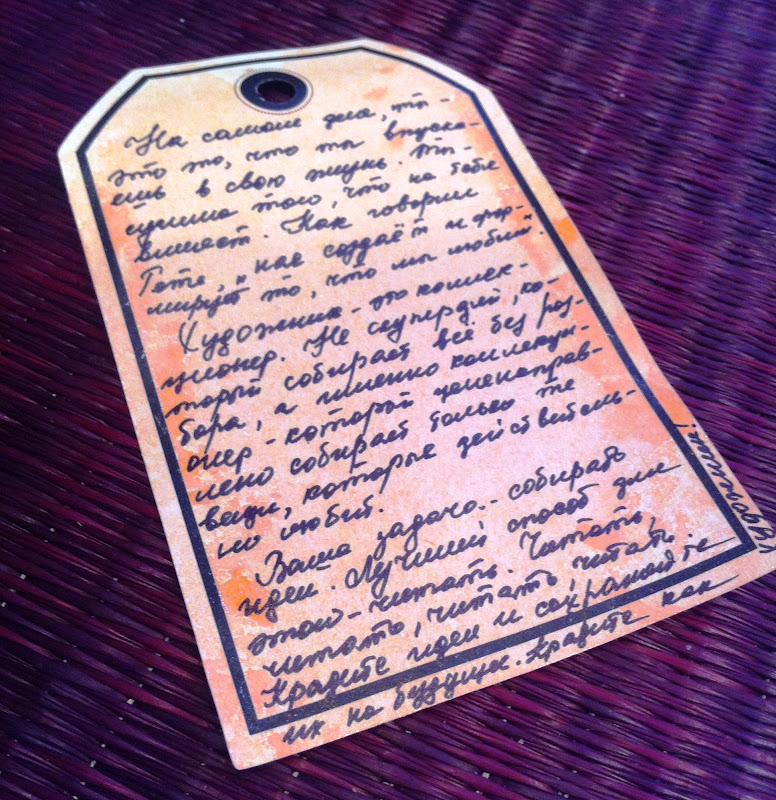 На самом деле, ты -
это то, что ты впуска-
ешь в свою жизнь. Ты -
сумма того, что на тебя
влияет. Как говорил
Гете, "нас создаёт и фор-
мирует то, что мы любим".
Художник - это коллек-
ционер. Не скупердяй, ко-
торый собирает всё без раз-
бора, а именно коллекци-
онер - который целенаправ-
лено собирает только те
вещи, которые действитель-
но любит.
Ваша задача - собирать
идеи. Лучший способ для
этого - читать. Читать,
читать, читать, читать
Крадите идеи и сохраняйте
их на будущее. Крадите как
художники!